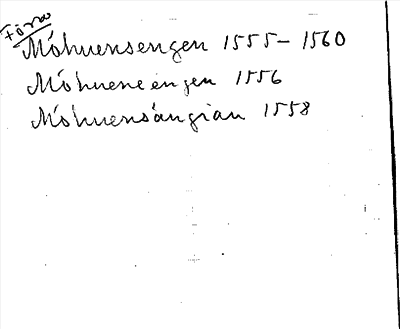 Förra
Móhuensengen 1555-1560
Móhuene engen 1556
Móhuensángian 1558